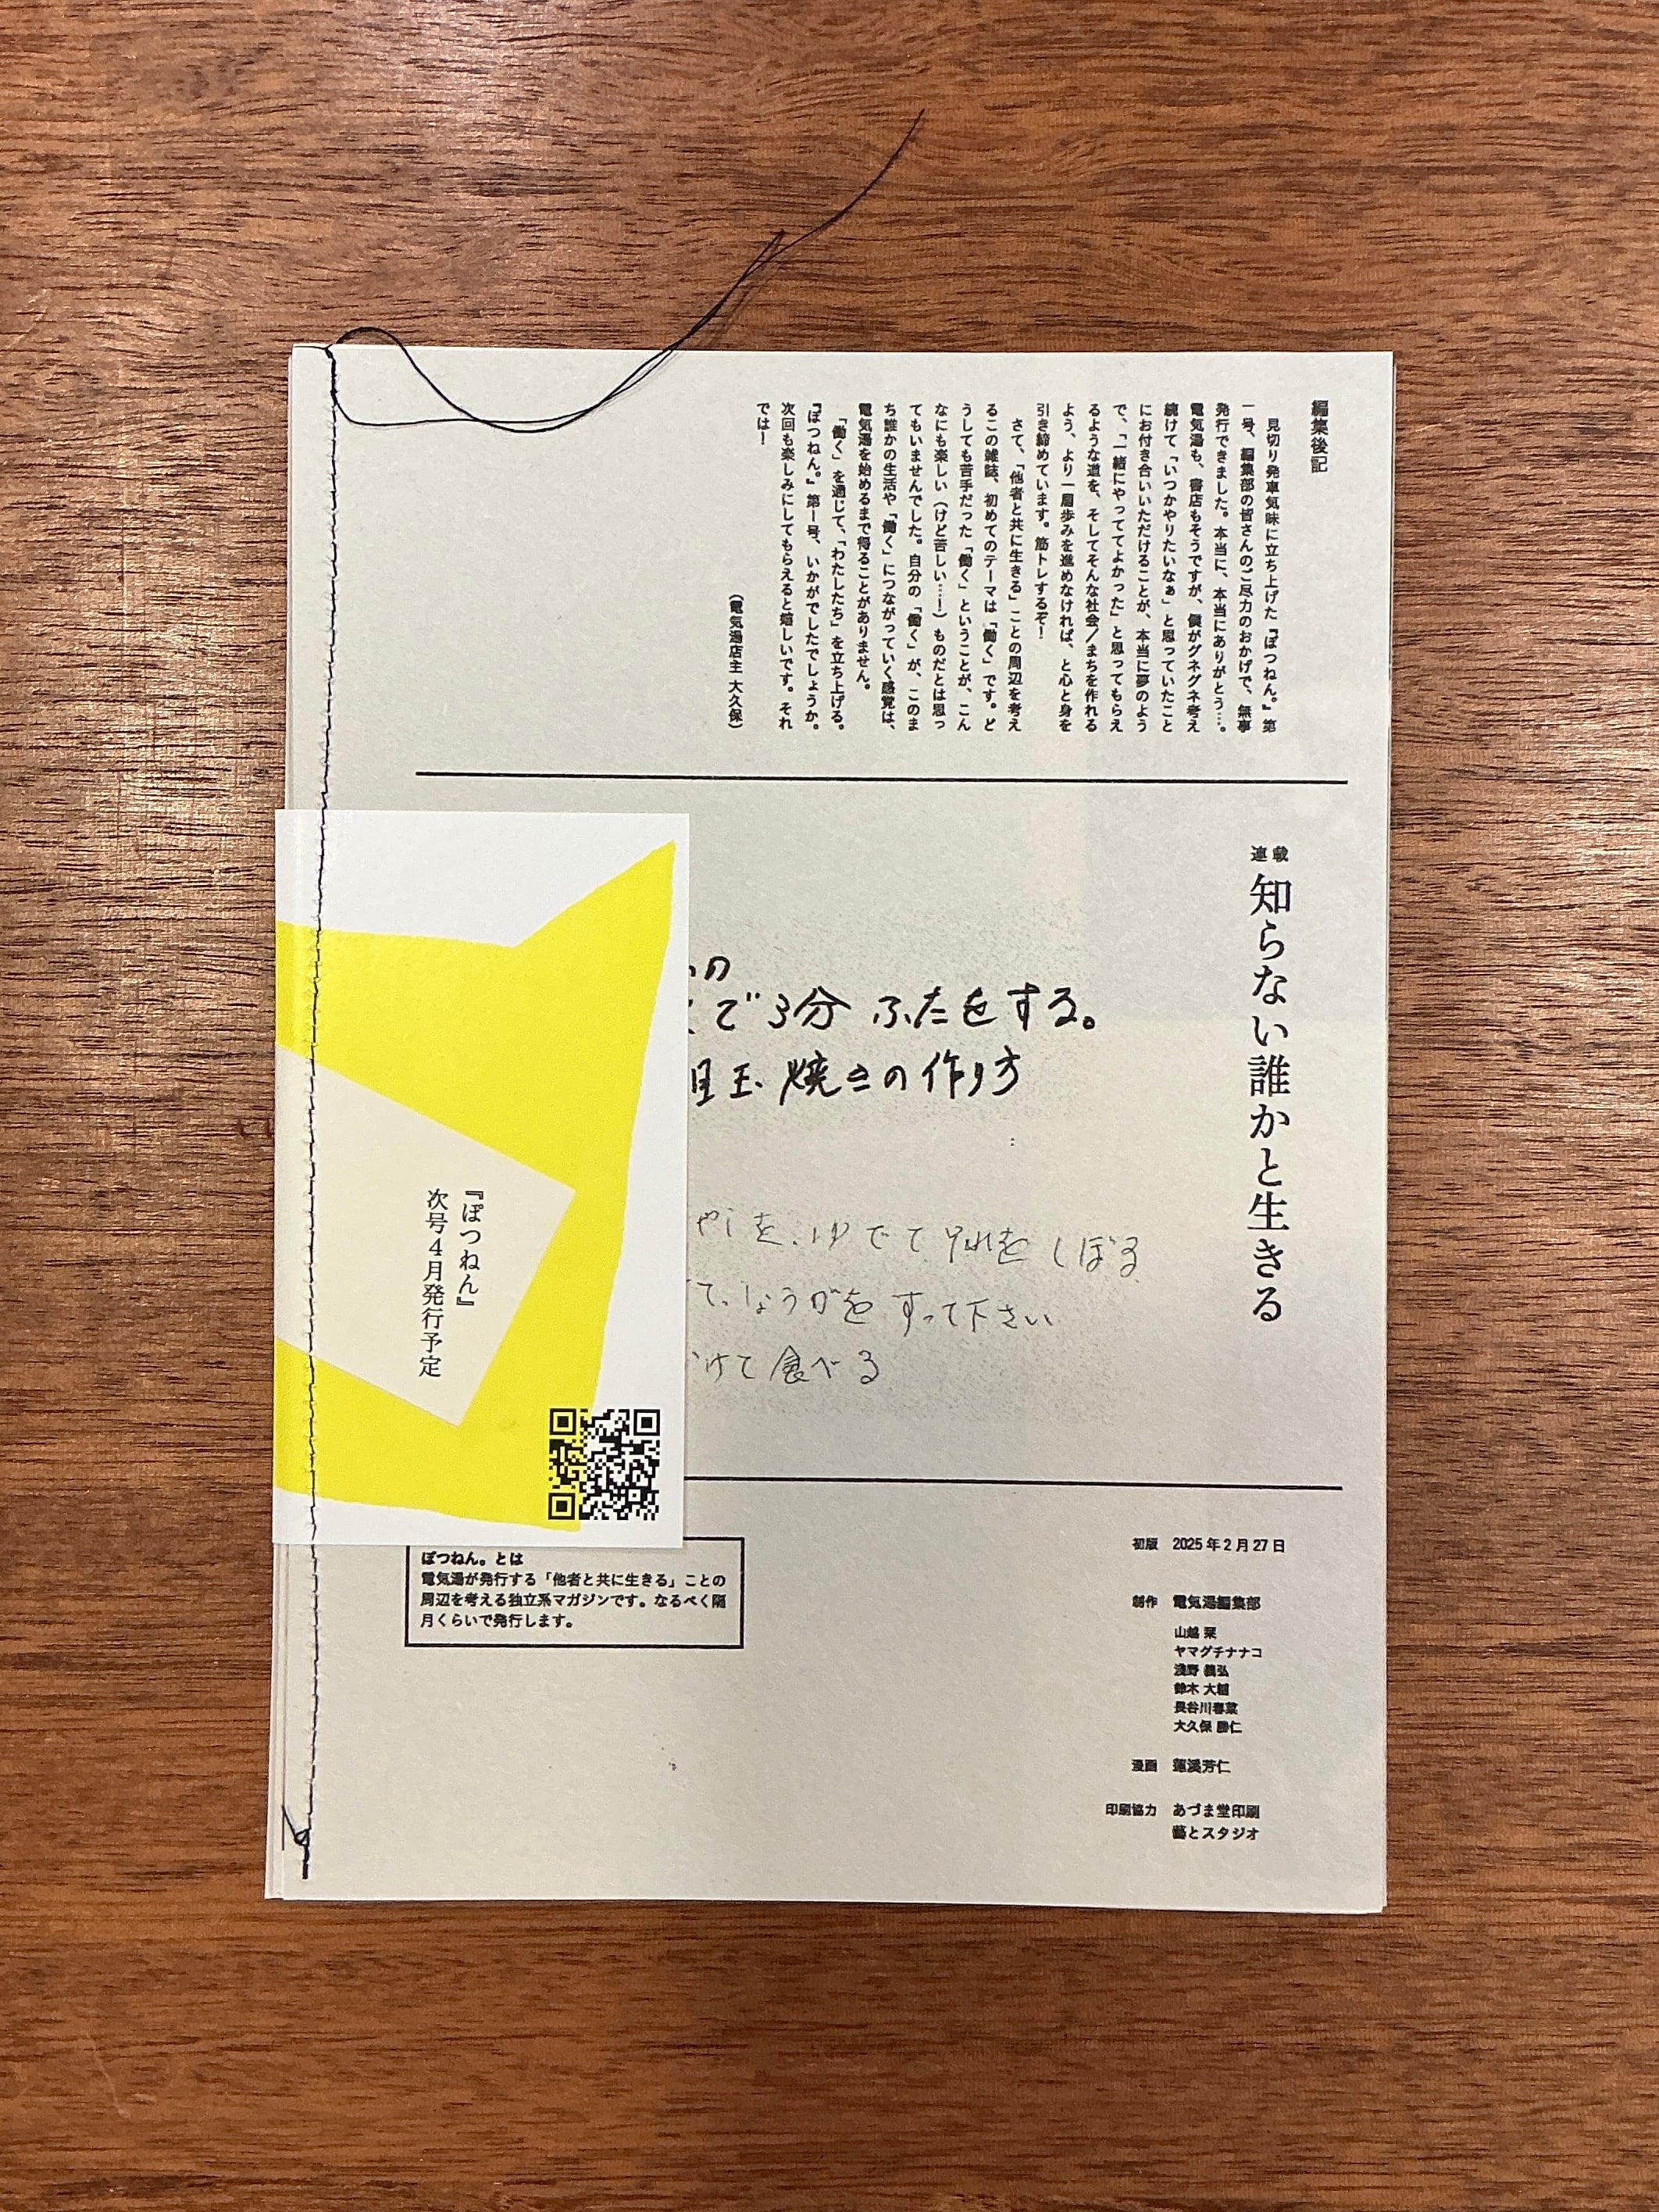 編集後記
見切り発車気味に立ち上げた『ぽつねん。』第
一号、編集部の皆さんのご尽力のおかげで、無事
発行できました。本当に、本当にありがとう…。
電気湯も、書店もそうですが、僕がグネグネ考え
続けて「いつかやりたいなぁ」と思っていたこと
にお付き合いいただけることが、本当に夢のよう
で、「一緒にやっててよかった」と思ってもらえ
るような道を、そしてそんな社会／まちを作れる
よう、より一層歩みを進めなければ、と心と身を
引き締めています。筋トレするぞ！
さて、「他者と共に生きる」ことの周辺を考え
るこの雑誌、初めてのテーマは「働く」です。ど
うしても苦手だった「働く」ということが、こん
なにも楽しい（けど苦しい…！）ものだとは思っ
てもいませんでした。自分の「働く」が、このま
ち誰かの生活や「働く」につながっていく感覚は、
電気湯を始めるまで得ることがありません。
「働く」を通じて、「わたしたち」を立ち上げる。
『ぽつねん。』第一号、いかがでしたでしょうか。
次回も楽しみにしてもらえると嬉しいです。それ
では！
（電気湯店主 大久保）
連載
知らない誰かと生きる
の
で3分 ふたをする。
目玉焼きの作り方
やしを、ゆでて 水をしぼる
て、しょうがを すって下さい
かけて食べる
『ぽつねん』
次号4月発行予定
ぽつねん。とは
電気湯が発行する「他者と共に生きる」ことの
周辺を考える独立系マガジンです。なるべく隔
月くらいで発行します。
初版 2025年2月27日
制作 電気湯編集部
山越 栞
ヤマグチナナコ
浅野 義弘
鈴木 大輔
長谷川春菜
大久保 勝仁
漫画 蓮溪芳仁
印刷協力 あづま堂印刷
藝とスタジオ